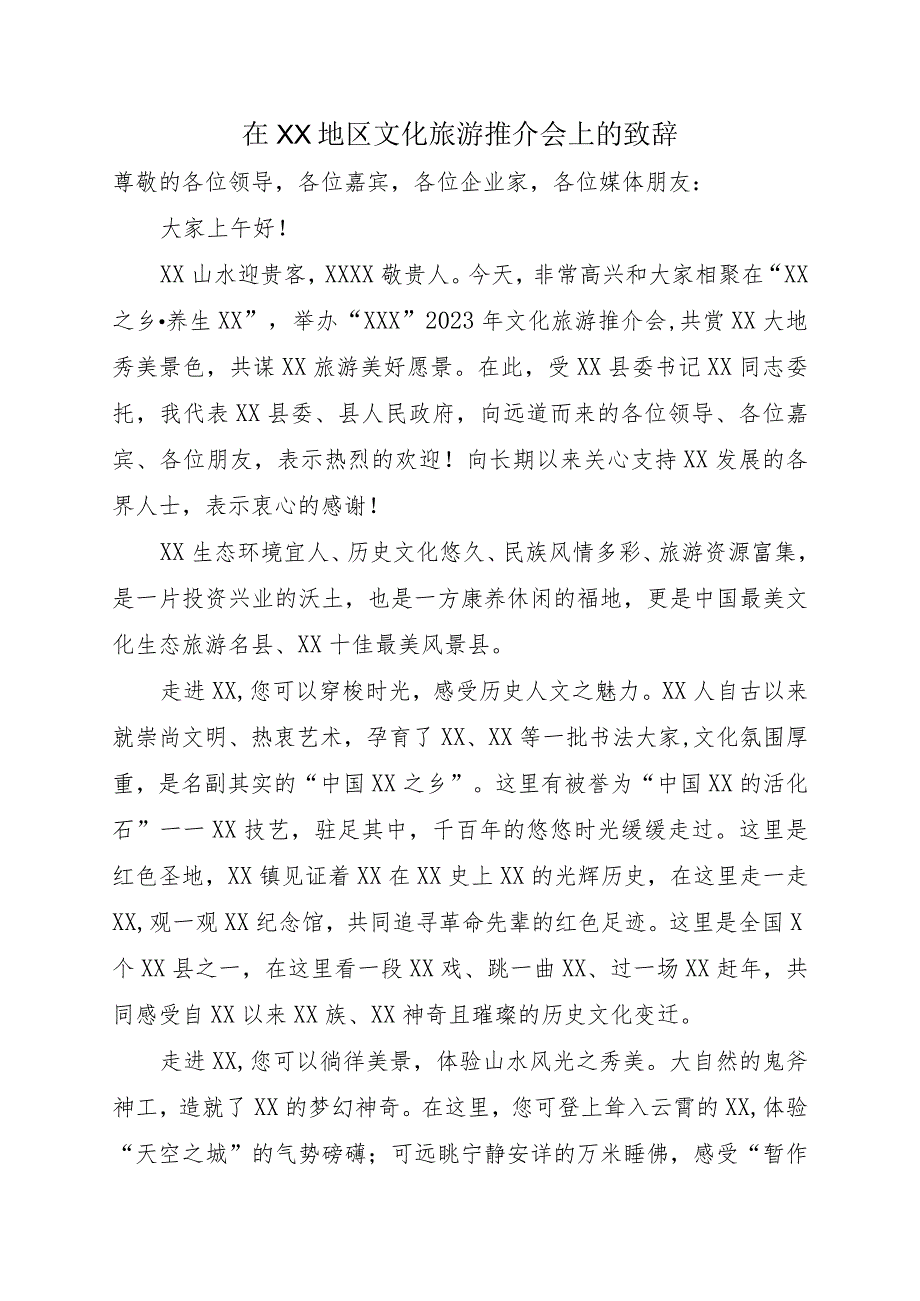 在XX地区文化旅游推介会上的致辞
尊敬的各位领导，各位嘉宾，各位企业家，各位媒体朋友：
大家上午好！
XX山水迎贵客，XXXX敬贵人。今天，非常高兴和大家相聚在“XX
之乡•养生XX”，举办“XXX”2023年文化旅游推介会,共赏XX大地
秀美景色，共谋XX旅游美好愿景。在此，受XX县委书记XX同志委
托，我代表XX县委、县人民政府，向远道而来的各位领导、各位嘉
宾、各位朋友，表示热烈的欢迎！向长期以来关心支持XX发展的各
界人士，表示衷心的感谢！
XX生态环境宜人、历史文化悠久、民族风情多彩、旅游资源富集，
是一片投资兴业的沃土，也是一方康养休闲的福地，更是中国最美文
化生态旅游名县、XX十佳最美风景县。
走进XX,您可以穿梭时光，感受历史人文之魅力。XX人自古以来
就崇尚文明、热衷艺术，孕育了XX、XX等一批书法大家,文化氛围厚
重，是名副其实的“中国XX之乡”。这里有被誉为“中国XX的活化
石”一一XX技艺，驻足其中，千百年的悠悠时光缓缓走过。这里是
红色圣地，XX镇见证着XX在XX史上XX的光辉历史，在这里走一走
XX,观一观XX纪念馆，共同追寻革命先辈的红色足迹。这里是全国X
个XX县之一，在这里看一段XX戏、跳一曲XX、过一场XX赶年，共
同感受自XX以来XX族、XX神奇且璀璨的历史文化变迁。
走进XX,您可以徜徉美景，体验山水风光之秀美。大自然的鬼斧
神工，造就了XX的梦幻神奇。在这里，您可登上耸入云霄的XX,体验
“天空之城”的气势磅礴；可远眺宁静安详的万米睡佛，感受“暂作